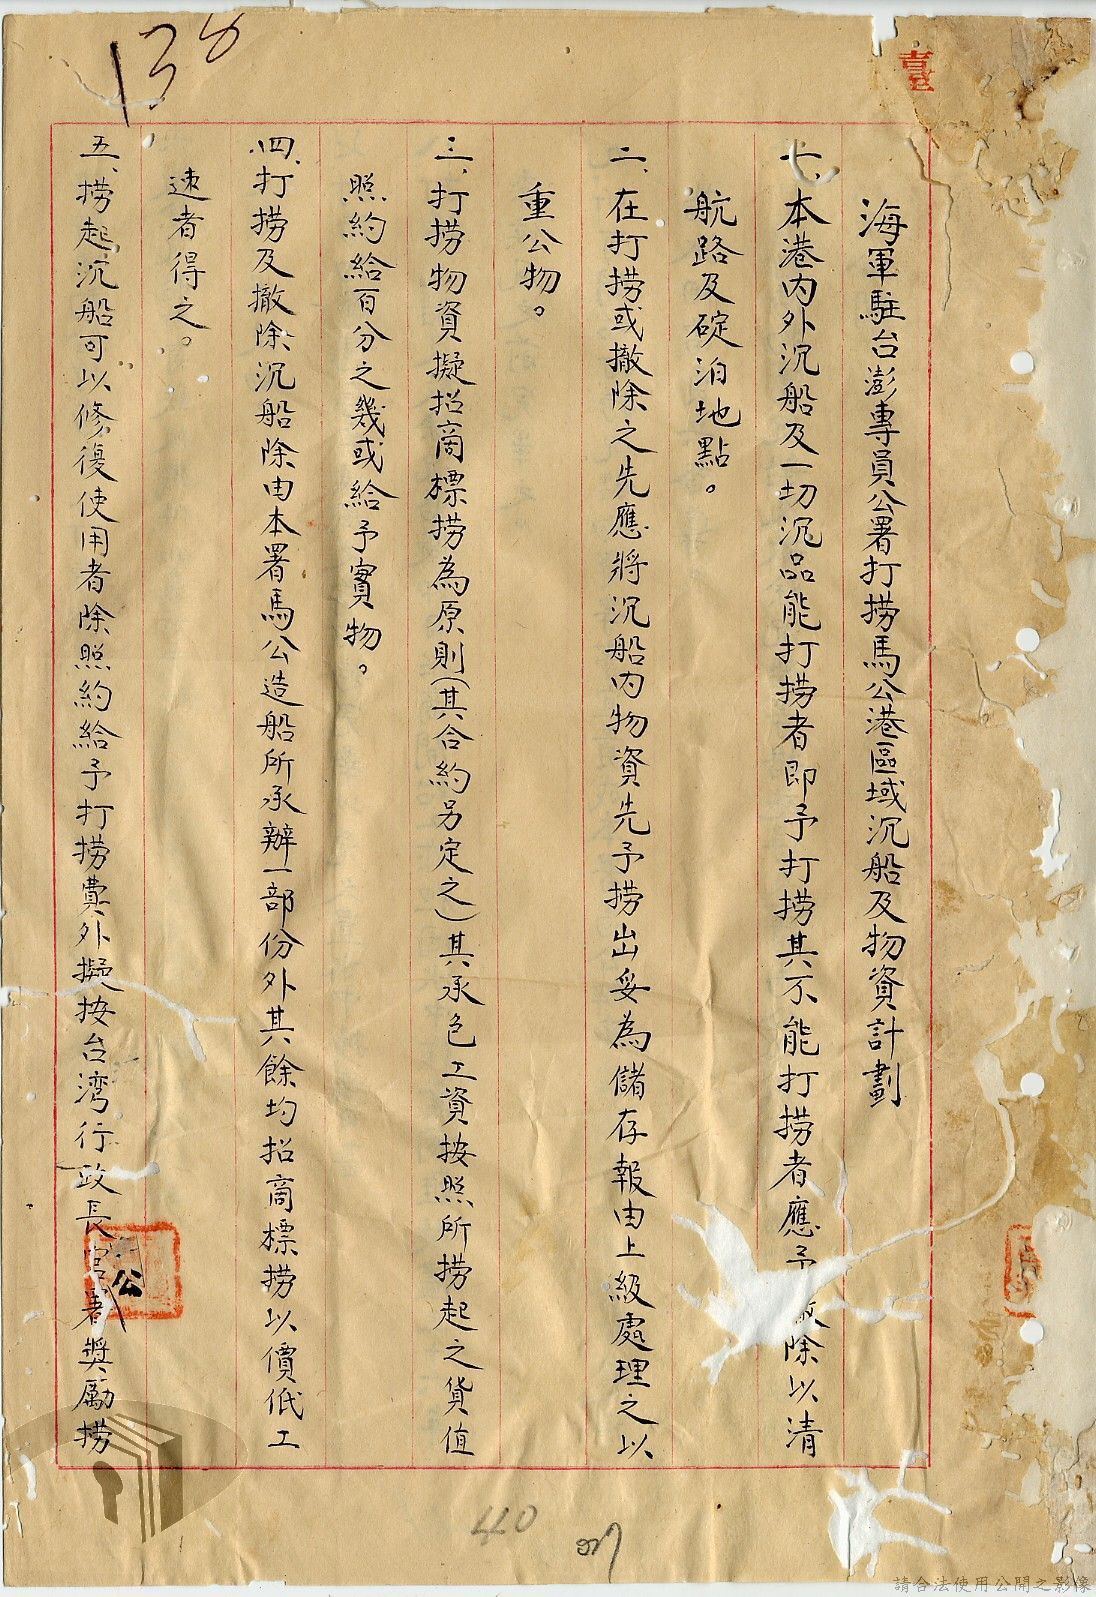 138
臺
海軍駐台澎專員公署打撈馬公港區域沉船及物資計劃
本港內外沉船及一切沉品能打撈者即予打撈其不能打撈者應予除以清
航路及碇泊地點。
二、在打撈或撤除之先應將沉船內物資先予撈出妥為儲存報由上級處理之以
重公物。
三、打撈物資擬招商標撈為原則(其合約另定之)其承包工資按照所撈起之貨值
照約給百分之幾或給予實物。
四、打撈及撤除沉船除由本署馬公造船所承辦一部份外其餘均招商標撈以價低工
速者得之。
五、撈起沉船可以修復使用者除照約給予打撈費外擬按台湾行政長官署獎勵撈
公
40
請合法使用公開之影像